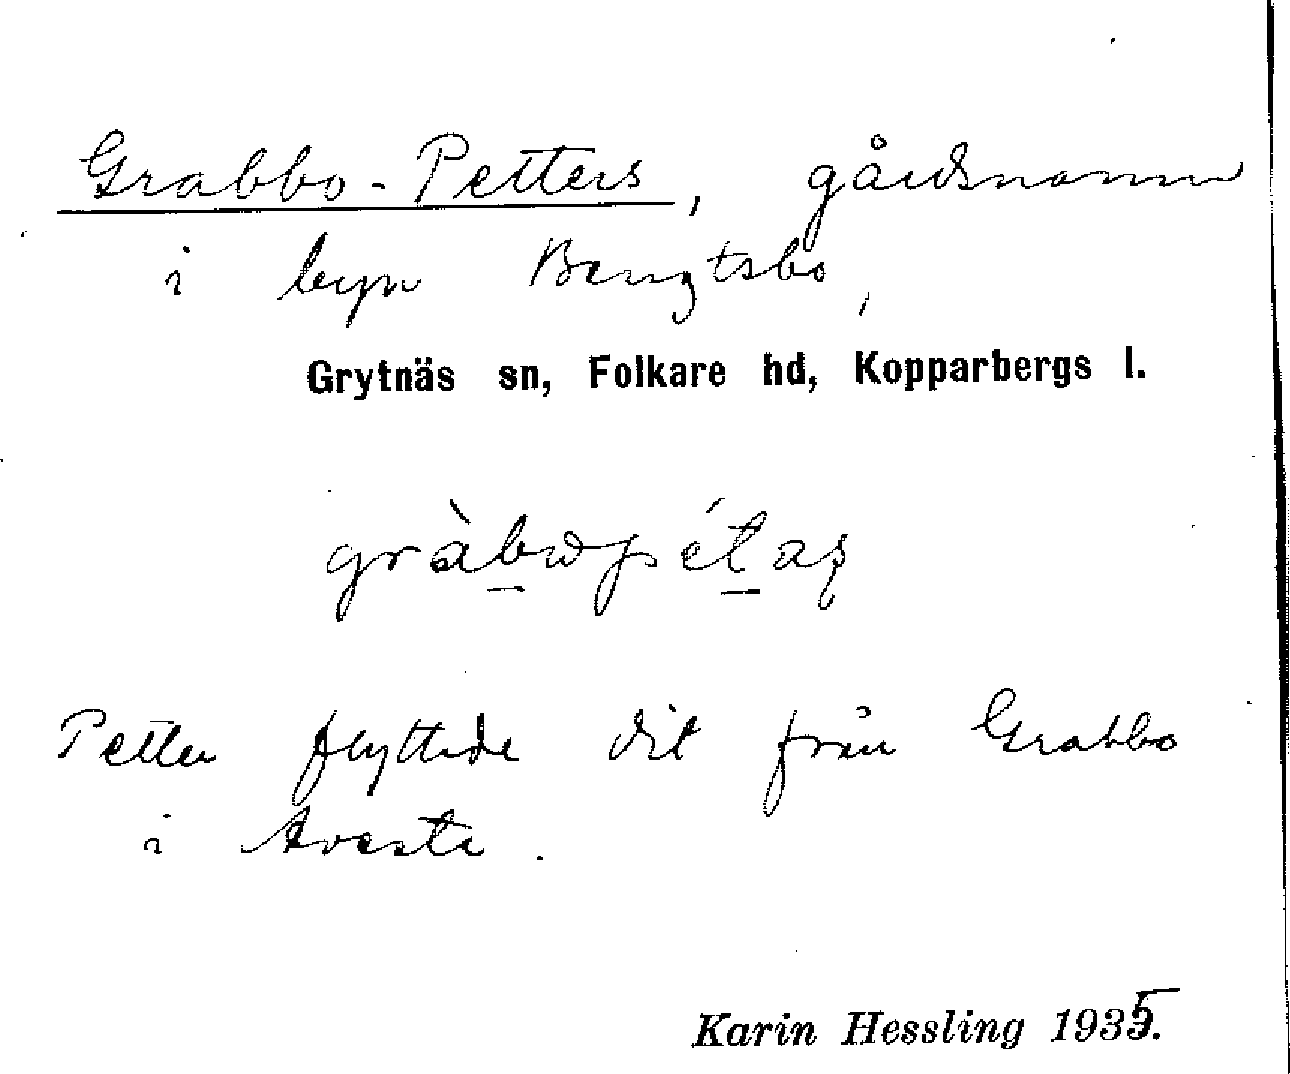 Grabbo-Petters, gårdsnamn
i byn Bengtsbo,
Grytnäs sn, Folkare hd, Kopparbergs l.
gràb̲ωpét̲aʂ
Petter flyttade dit från Grabbo
i Avesta.
Karin Hessling 1935.